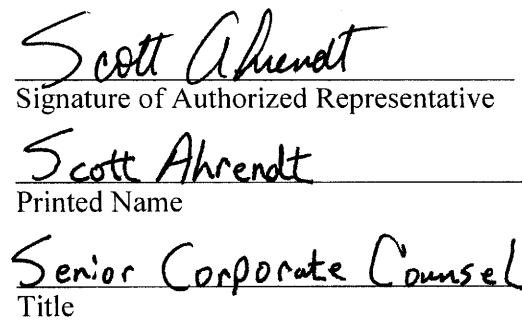 Scott Ahrendt
Signature of Authorized Representative
Scott Ahrendt
Printed Name
Senior Corporate Counsel
Title